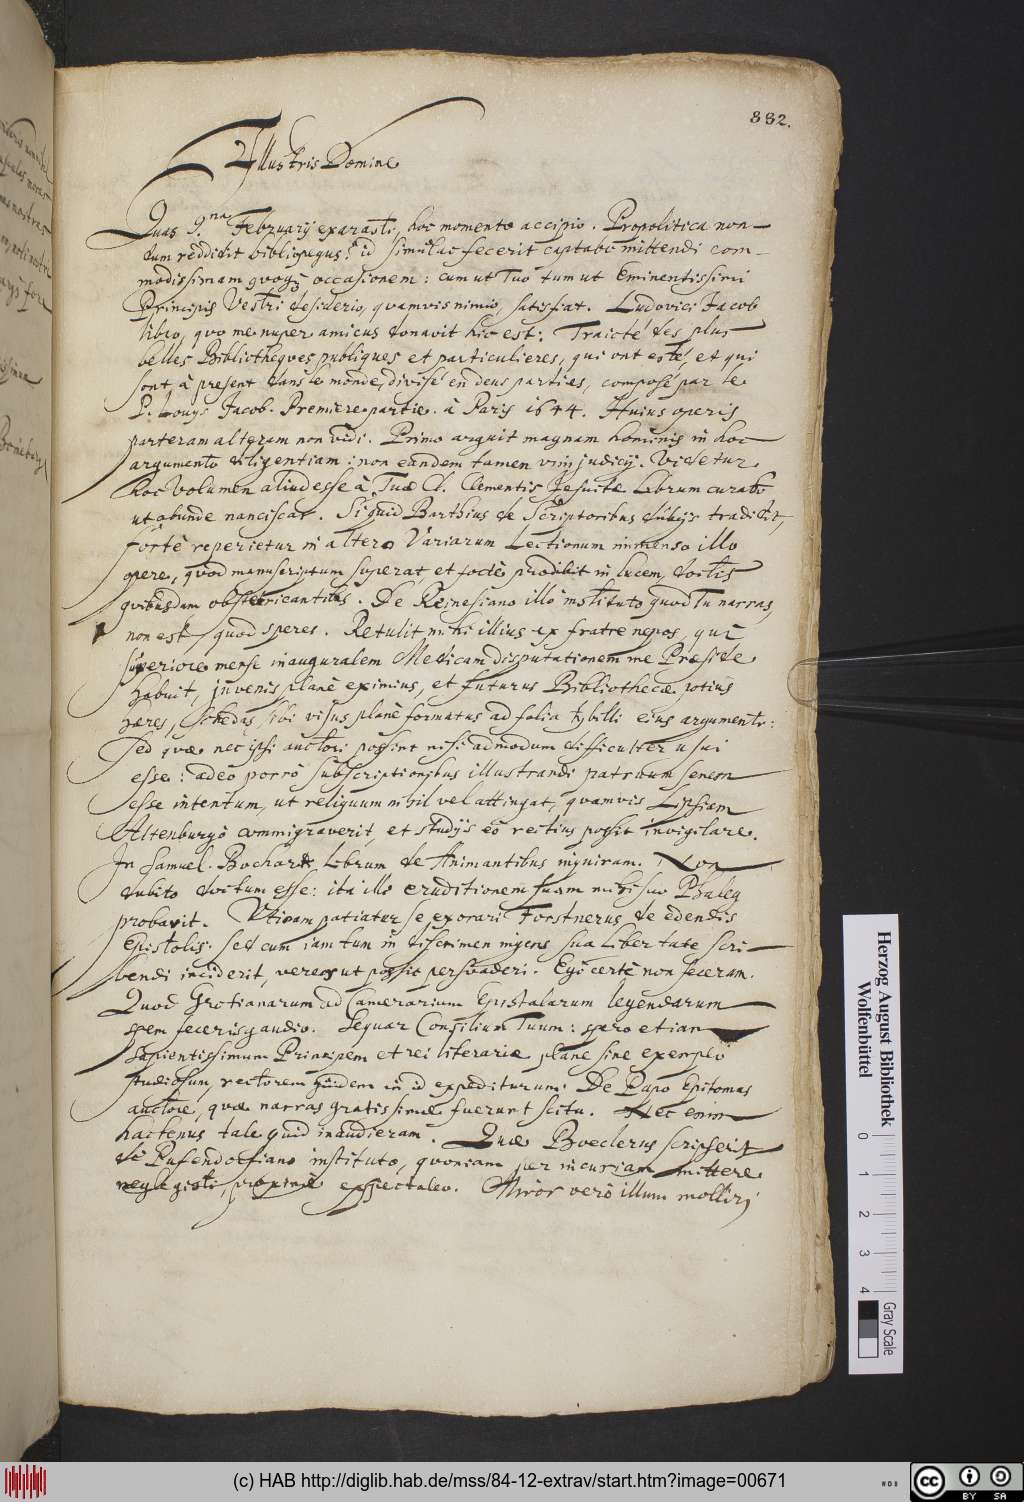 332.
Illustris Domine
Quas 9.na Februarij exarasti, hoc momento accipio. Propolitica non-
dum reddidit bibliopegus: id simulac fecerit captabo mittendi com-
modissimam quoque occasionem: cum ut Tuo tum ut Eminentissimi
Principis Vestri desiderio, quamvis nimio, satisfiat. Ludovici Jacob
libro, quo me nuper amicus donavit hic est: Traicté des plus
belles Bibliotheques publiques et particulieres, qui ont esté et qui
sont à present dans le monde, divisé en deus parties, composé par le
P. Louys Jacob. Premiere partie. à Paris 1644. Huius operis
partem alteram non vidi. Primo arguit magnam hominis in hoc
argumento diligentiam: non eandem tamen vim judicij. Videtur
hoc volumen aliud esse à Tuo Cl. Clementis Jesuitæ librum curabo
ut abunde nanciscar. Siquid Barthius de Scriptoribus dubijs tradidit,
fortè reperietur in altero Variarum Lectionum immenso illo
opere, quod manuscriptum superat, et fortè prodibit in lucem, doctis
quibusdam obstetricantibus. De Reinesiano illo instituto quod Tu narras,
non est quod speres. Retulit mihi illius ex fratre nepos, qui
superiore mense inauguralem Medicam disputationem me Præside
habuit, juvenis planè eximius, et futurus Bibliothecæ potius
hæres, schedas sibi visas planè formatas ad folia Sybilli eius argumenti:
sed quæ nec ipsi auctori possint nisi admodum difficulter usui
esse: adeò porrò subscriptionibus illustrandi patruum senem
esse intentum, ut reliquum nihil vel attingat, quamvis Lipsiam
Altenburgò commigraverit, et studijs eò rectius possit invigilare.
In Samuel. Bochart librum de Animantibus inquiram. Non
dubito doctum esse: ita ille eruditionem suam mihi suo Phaleg
probavit. Utinam patiatur se exorari Forstnerus de edendis
Epistolis: sed cum iam tum in discrimen ingens sua libertate scri-
bendi inciderit, vereor ut possit persuaderi. Ego certè non feceram.
Quod Grotianarum ad Camerarium Epistolarum legendarum
spem feceris gaudeo. Sequar Consilium Tuum: spero etiam
Sapientissimum Principem et rei literariæ plane sine exemplo
studiosum, rectorem quidem in id expediturum. De Papo Epitomes
auctore, quæ narras gratissimæ fuerunt scitu. Nec enim
hactenus tale quid inaudieram. Quæ Boeclerus scripserit
de Pufendorfiano instituto, quoniam per incuriam mittere
neglegisti, proximè expectabo. Miror verò illum moliri
(c) HAB http://diglib.hab.de/mss/84-12-extrav/start.htm?image=00671
Herzog August Bibliothek
Wolfenbüttel
0 1 2 3 4
Gray Scale
cc BY SA